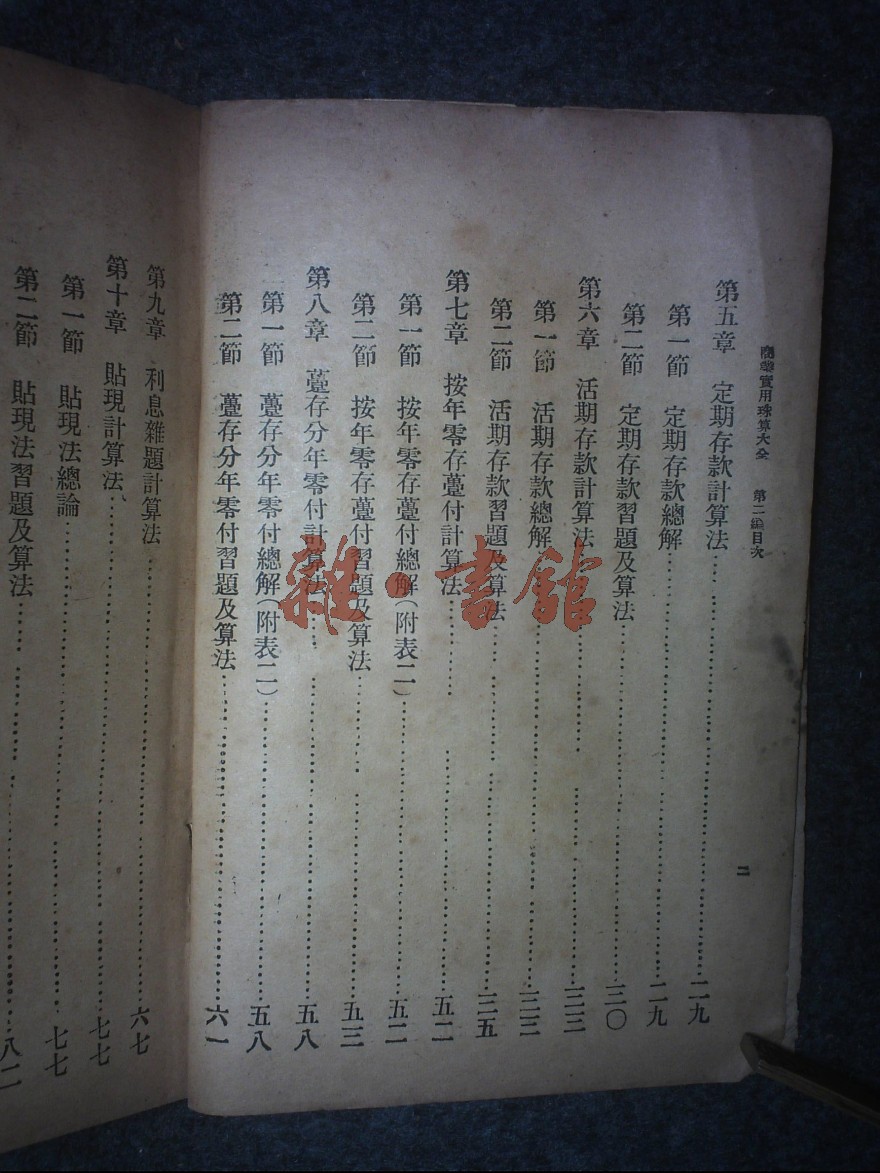 商業實用珠算大全 第二編目次 二
第五章 定期存款計算法 二九
第一節 定期存款總解 二九
第二節 定期存款習題及算法 三〇
第六章 活期存款計算法 三三
第一節 活期存款總解 三三
第二節 活期存款習題及算法 三五
第七章 按年零存躉付計算法 五二
第一節 按年零存躉付總解(附表二) 五二
第二節 按年零存躉付習題及算法 五三
第八章 躉存分年零付計算法 五八
第一節 躉存分年零付總解(附表二) 五八
第二節 躉存分年零付習題及算法 六一
第九章 利息雜題計算法 六七
第十章 貼現計算法 七七
第一節 貼現法總論 七七
第二節 貼現法習題及算法 八二
雜·書館